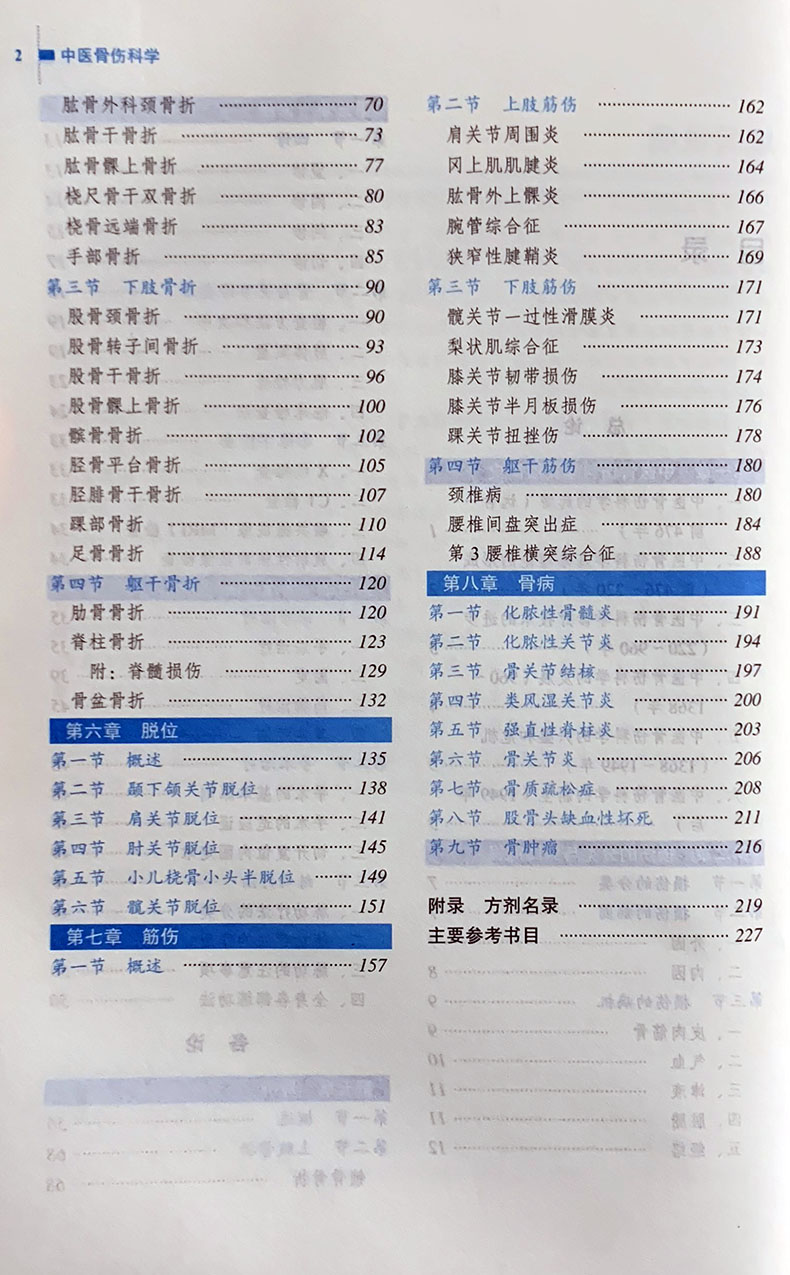 2 中医骨伤科学
肱骨外科颈骨折 70
肱骨干骨折 73
肱骨髁上骨折 77
桡尺骨干双骨折 80
桡骨远端骨折 83
手部骨折 85
第三节 下肢骨折 90
股骨颈骨折 90
股骨转子间骨折 93
股骨干骨折 96
股骨髁上骨折 100
髌骨骨折 102
胫骨平台骨折 105
胫腓骨干骨折 107
踝部骨折 110
足骨骨折 114
第四节 躯干骨折 120
肋骨骨折 120
脊柱骨折 123
附：脊髓损伤 129
骨盆骨折 132
第六章 脱位
第一节 概述 135
第二节 颞下颌关节脱位 138
第三节 肩关节脱位 141
第四节 肘关节脱位 145
第五节 小儿桡骨小头半脱位 149
第六节 髋关节脱位 151
第七章 筋伤
第一节 概述 157
第二节 上肢筋伤 162
肩关节周围炎 162
冈上肌肌腱炎 164
肱骨外上髁炎 166
腕管综合征 167
狭窄性腱鞘炎 169
第三节 下肢筋伤 171
髋关节一过性滑膜炎 171
梨状肌综合征 173
膝关节韧带损伤 174
膝关节半月板损伤 176
踝关节扭挫伤 178
第四节 躯干筋伤 180
颈椎病 180
腰椎间盘突出症 184
第3腰椎横突综合征 188
第八章 骨病
第一节 化脓性骨髓炎 191
第二节 化脓性关节炎 194
第三节 骨关节结核 197
第四节 类风湿关节炎 200
第五节 强直性脊柱炎 203
第六节 骨关节炎 206
第七节 骨质疏松症 208
第八节 股骨头缺血性坏死 211
第九节 骨肿瘤 216
附录 方剂名录 219
主要参考书目 227